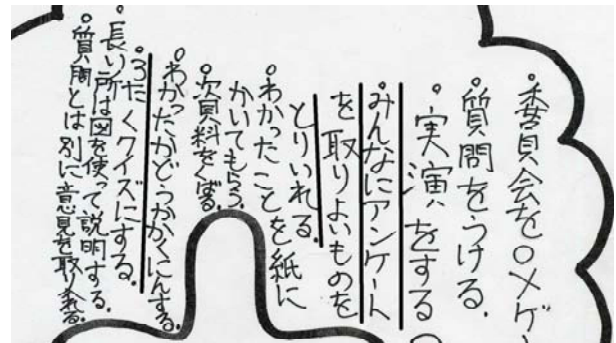 ・委員会を〇×ゲ
・質問をうける.
・実演をする
・みんなにアンケート
を取りよいものを
とりいれる.
・わかったことを紙に
かいてもらう.
・資料をくばる.
・わかったかどうかかくにんする.
・3たくクイズにする.
・長い所は図を使って説明する.
・質問とは別に意見を取り入れる.